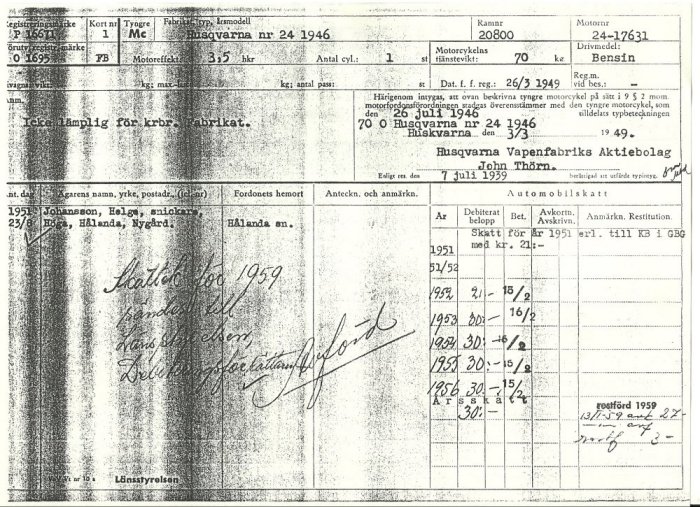 Registreringsmärke Kort nr Tyngre Fabrikat, typ, årsmodell Ramnr Motornr
P 16671 1 Mc Husqvarna nr 24 1946 20800 24-17631
Förutv. registr.märke Motoreffekt: 3,5 hkr Antal cyl.: 1 st Motorcykelns tjänstevikt: 70 kg Drivmedel: Bensin
O 1695 FB
kg; max. kg; antal pass: st Dat. f. f. reg.: 26/3 1949 Reg.m. vid bes.: -
Härigenom intygas, att ovan beskrivna tyngre motorcykel på sätt i 9 § 2 mom.
motorfordonsförordningen stadgas överensstämmer med den tyngre motorcykel, som
den 26 juli 1946 tilldelats typbeteckningen
Icke lämplig för krbr. Fabrikat.
70 O Husqvarna nr 24 1946
Huskvarna den 3/3 1949.
Husqvarna Vapenfabriks Aktiebolag
John Thörn.
Enligt res. den 7 juli 1939 berättigad att utfärda typintyg.
Ägarens namn, yrke, postadr., Fordonets hemort Anteckn. och anmärkn. Automobilskatt
År Debiterat belopp Bet. Avkortn. Avskrivn. Anmärkn. Restitution.
1951 Johansson, Helge, snickare,
23/8 Höga, Hålanda, Nygård. Hålanda sn.
Skatt för år 1951 erl. till KB i GBG
med kr. 21:-
1951
51/52
1959
till
1952 21:- 15/2
1953 30:- 16/2
1954 30:- 15/2
1955 30:- 15/2
1956 30:- 15/2
Årsskatt
30:-
restförd 1959
27-
3-
Länsstyrelsen